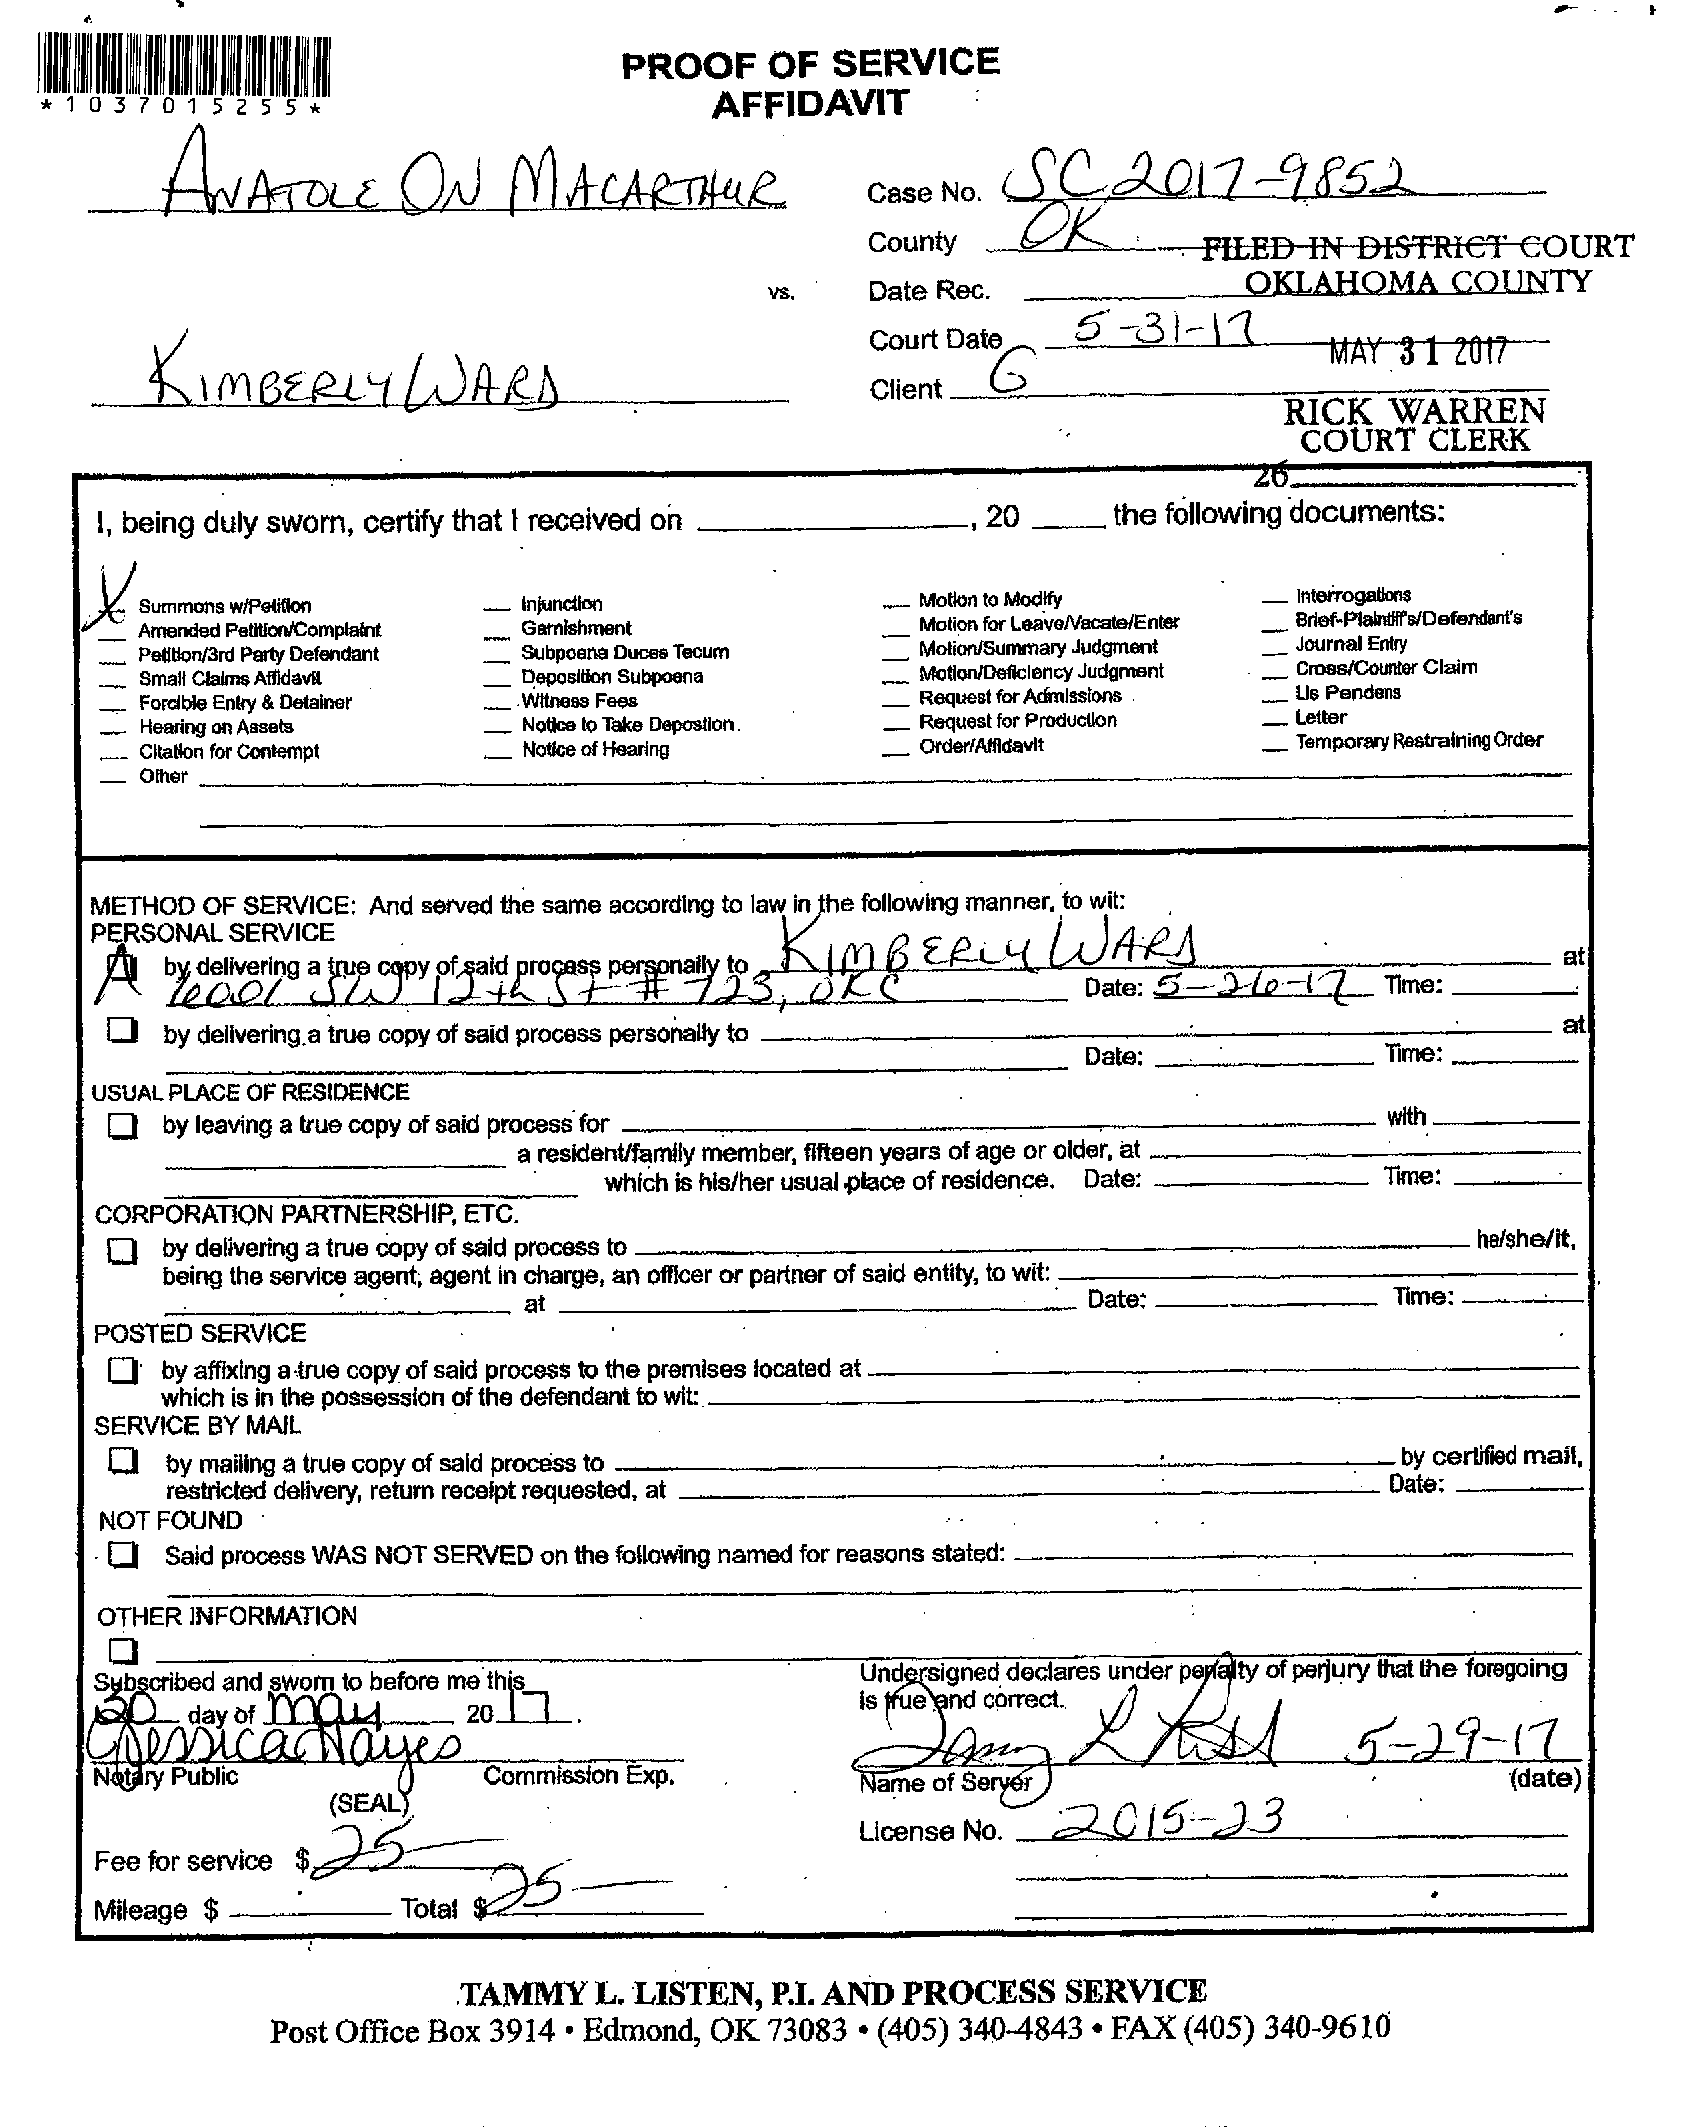 *1037015255*
PROOF OF SERVICE
AFFIDAVIT
ANATOLE ON MACARTHUR
Case No. SC 2017-9852
County OK
FILED IN DISTRICT COURT
OKLAHOMA COUNTY
vs.
Date Rec.
Court Date 5-31-17
MAY 31 2017
KIMBERLY WARD
Client G
RICK WARREN
COURT CLERK
26
I, being duly sworn, certify that I received on , 20 the following documents:
X Summons w/Petition
Amended Petition/Complaint
Petition/3rd Party Defendant
Small Claims Affidavit
Forcible Entry & Detainer
Hearing on Assets
Citation for Contempt
Other
Injunction
Garnishment
Subpoena Duces Tecum
Deposition Subpoena
Witness Fees
Notice to Take Depostion.
Notice of Hearing
Motion to Modify
Motion for Leave/Vacate/Enter
Motion/Summary Judgment
Motion/Deficiency Judgment
Request for Admissions
Request for Production
Order/Affidavit
Interrogations
Brief-Plaintiff's/Defendant's
Journal Entry
Cross/Counter Claim
Lis Pendens
Letter
Temporary Restraining Order
METHOD OF SERVICE: And served the same according to law in the following manner, to wit:
PERSONAL SERVICE
by delivering a true copy of said process personally to KIMBERLY WARD at
6001 SW 12th St # 723, OKC Date: 5-26-17 Time:
by delivering a true copy of said process personally to at
Date: Time:
USUAL PLACE OF RESIDENCE
by leaving a true copy of said process for with
a resident/family member, fifteen years of age or older, at
which is his/her usual place of residence. Date: Time:
CORPORATION PARTNERSHIP, ETC.
by delivering a true copy of said process to he/she/it,
being the service agent, agent in charge, an officer or partner of said entity, to wit:
at Date: Time:
POSTED SERVICE
by affixing a true copy of said process to the premises located at
which is in the possession of the defendant to wit:
SERVICE BY MAIL
by mailing a true copy of said process to by certified mail,
restricted delivery, return receipt requested, at Date:
NOT FOUND
Said process WAS NOT SERVED on the following named for reasons stated:
OTHER INFORMATION
Subscribed and sworn to before me this
30 day of May 2017.
Jessica Hayes
Notary Public Commission Exp.
(SEAL)
Fee for service $ 25—
Mileage $ Total $ 25—
Undersigned declares under penalty of perjury that the foregoing
is true and correct.
5-29-17
Name of Server (date)
License No. 2015-23
TAMMY L. LISTEN, P.I. AND PROCESS SERVICE
Post Office Box 3914 • Edmond, OK 73083 • (405) 340-4843 • FAX (405) 340-9610